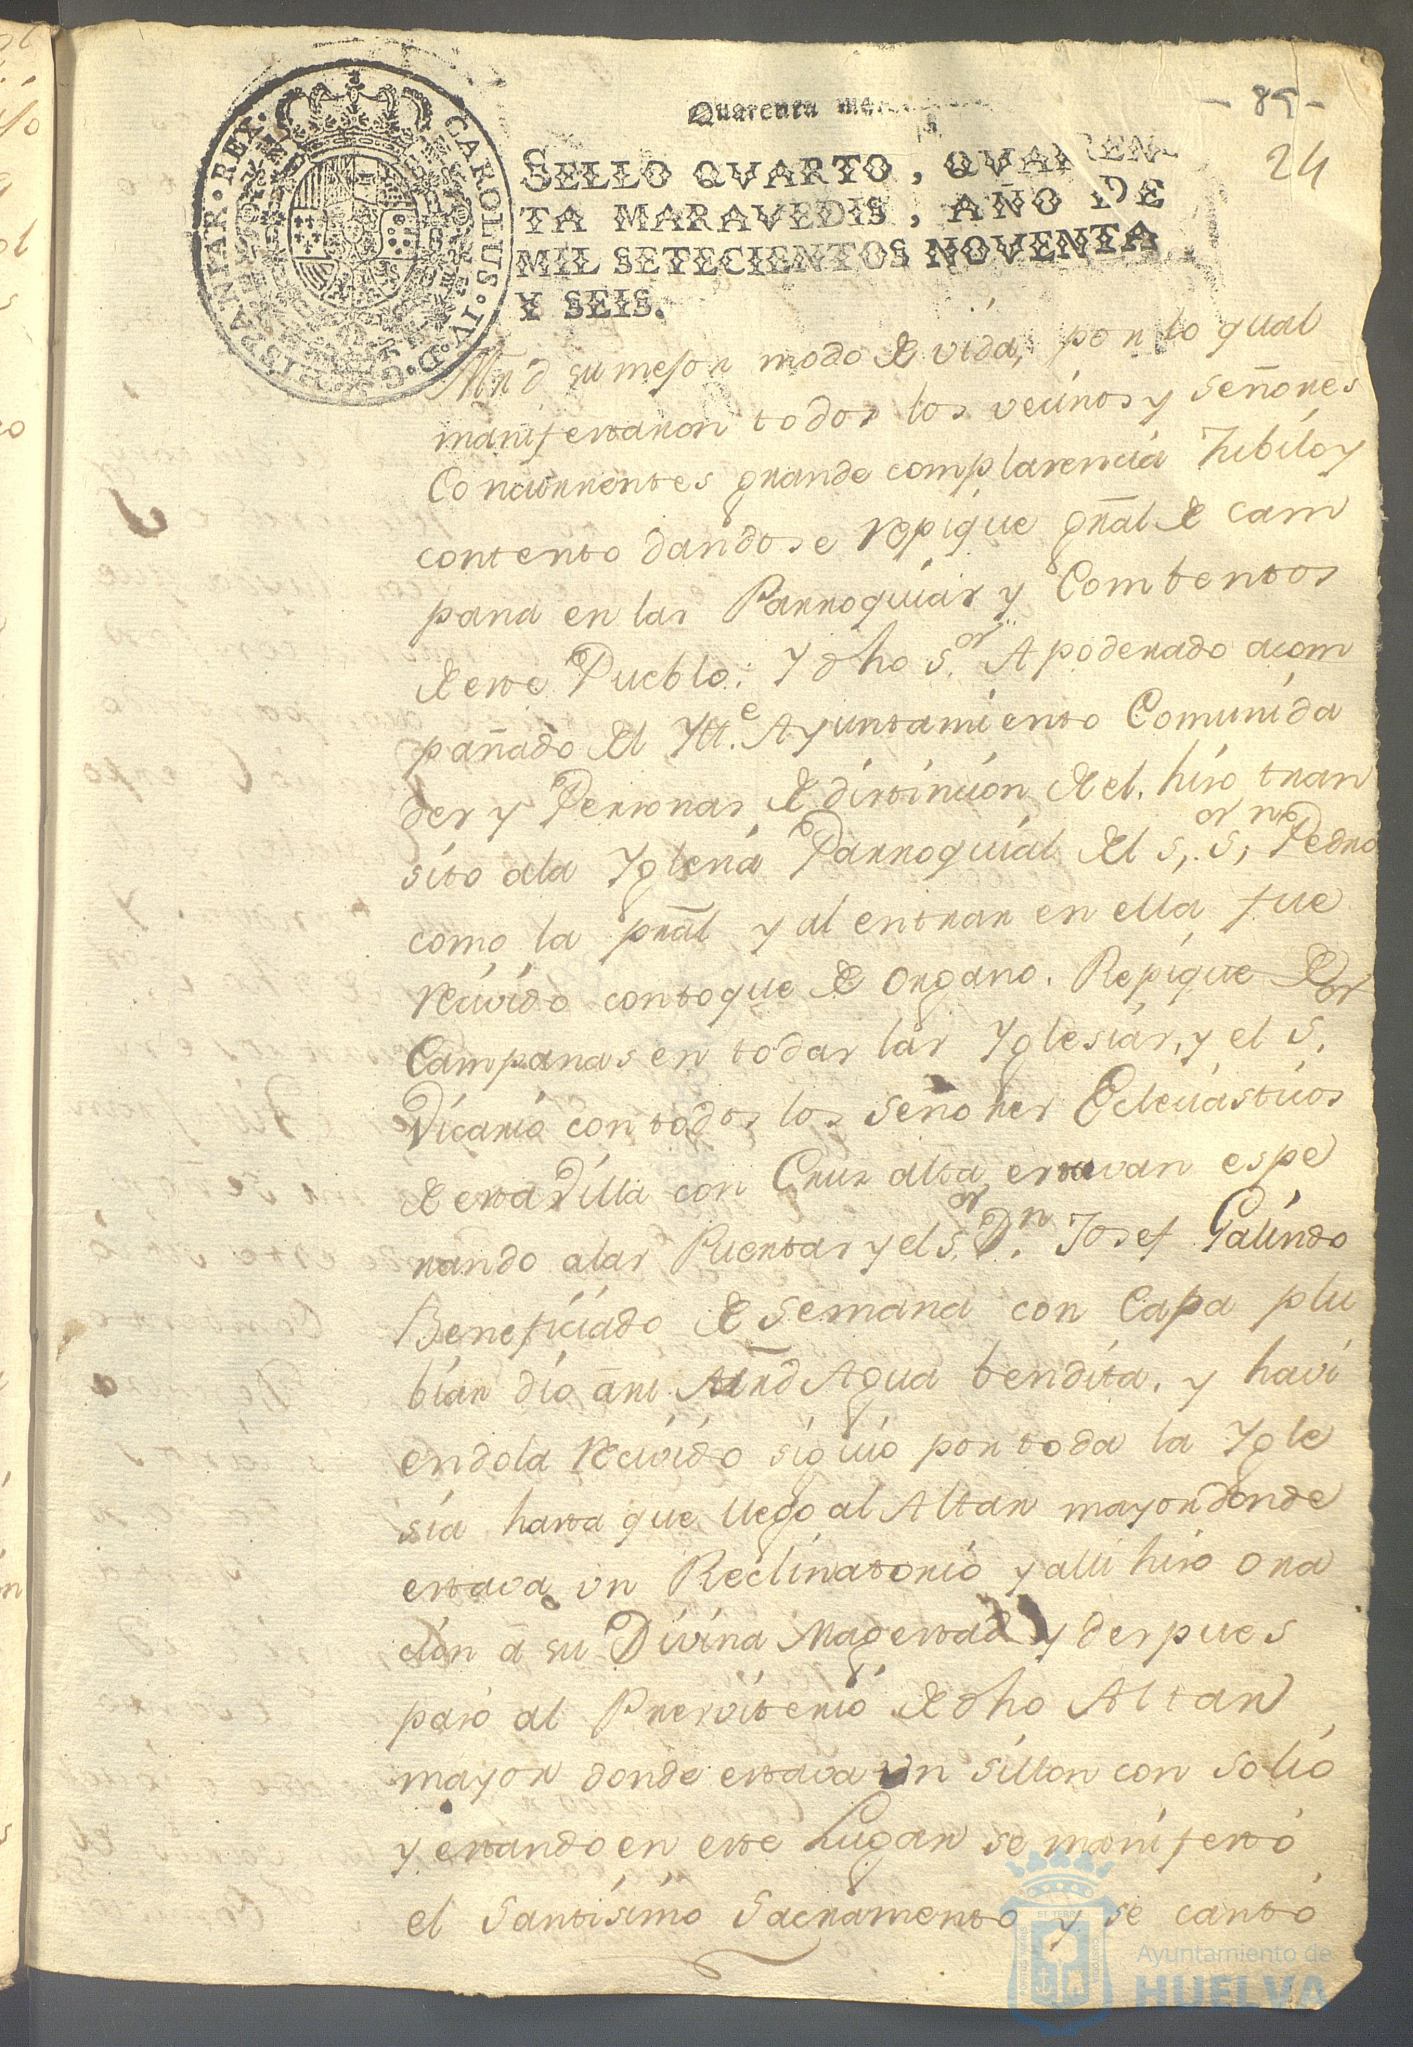 Quarenta
- 85 -
24
CAROLUS · IV · D · G · HISPANIAR · REX ·
SELLO QVARTO, QVAREN-
TA MARAVEDIS, AÑO DE
MIL SETECIENTOS NOVENTA
Y SEIS.
su mejor modo de vida, por lo qual
manifestaron todos los vecinos y señores
Concurrentes grande complasencia Jubilo y
contento dandose repique gñral de cam
pana en las Parroquias y Combentos
de este Pueblo: Y dho S.or Apoderado acom
pañado del Ytt.e Ayuntamiento Comunida
des y Personas de distincion de el. hizo tran
sito a la Yglesia Parroquial del S.or S.n Pedro
como la pral y al entrar en ella fue
recivido con toque de organo. Repique de
Campanas en todas las Yglesias, y el S.or
Vicario con todos los señores Eclesiasticos
de esta Villa con Cruz alta estavan espe
rando a las Puertas y el S.or D.n Josef Galindo
Beneficiado de semana con Capa plu
bial dio Agua bendita. y havi
endola recivido siguio por toda la Ygle
sia hasta que llego al Altar mayor donde
estava un Reclinatorio y alli hizo ora
cion a su Divina Magestad y despues
paso al Presviterio de dho Altar
mayor donde estava un sillon con solio
y estando en este Lugar se manifestó
el Santisimo Sacramento y se cantó
Ayuntamiento de
HUELVA